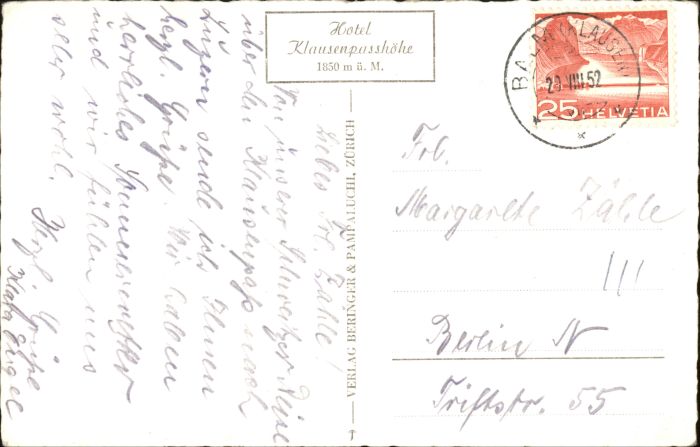 Hotel
Klausenpasshöhe
1850 m ü. M.
BALM (KLAUSEN)
29 VIII 52
25 HELVETIA
Liebes Frl. Zähle!
Von unserer Schweizer Reise
über den Klausenpaß nach
Luzern sende ich Ihnen
herzl. Grüße. Wir haben
herrliches Sommerwetter
und wir fühlen uns
sehr wohl.
Herzl. Grüße
VERLAG BERINGER & PAMPALUCHI, ZÜRICH
Frl.
Margarete Zähle
Berlin N
Triftstr. 55